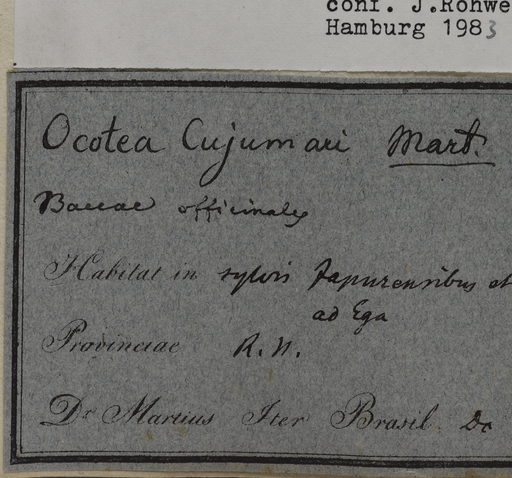 conf. J.Rohwe
Hamburg 1983
Ocotea Cujumari Mart.
Baccae officinales
Habitat in sylvis Japurensibus et
ad Ega
Provinciae R. N.
Dr Martius Iter Brasil. Dc